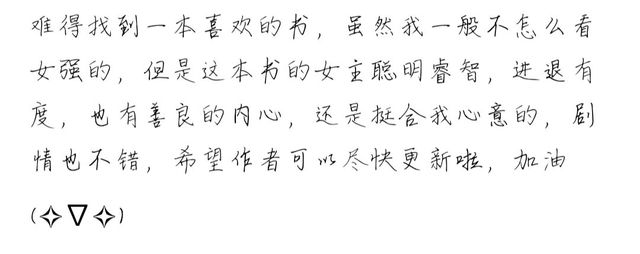 难得找到一本喜欢的书，虽然我一般不怎么看
女强的，但是这本书的女主聪明睿智，进退有
度，也有善良的内心，还是挺合我心意的，剧
情也不错，希望作者可以尽快更新啦，加油
(✧∇✧)